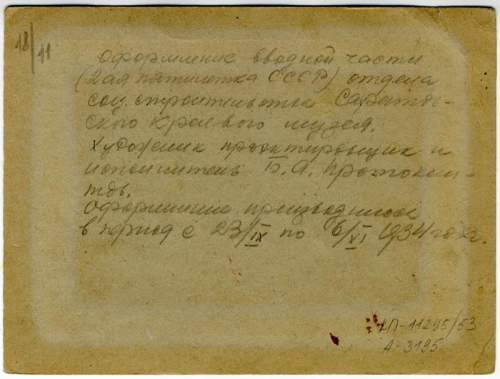 18/11
Оформление вводной части
(2ая пятилетка СССР) отдела
соц. строительства Саратов-
ского Краевого музея.
Художник проектировщик и
исполнитель Б. А.
Оформление производилось
в период с 23/IX по 6/XI 1934 года.
КП-11295/53
А-3195